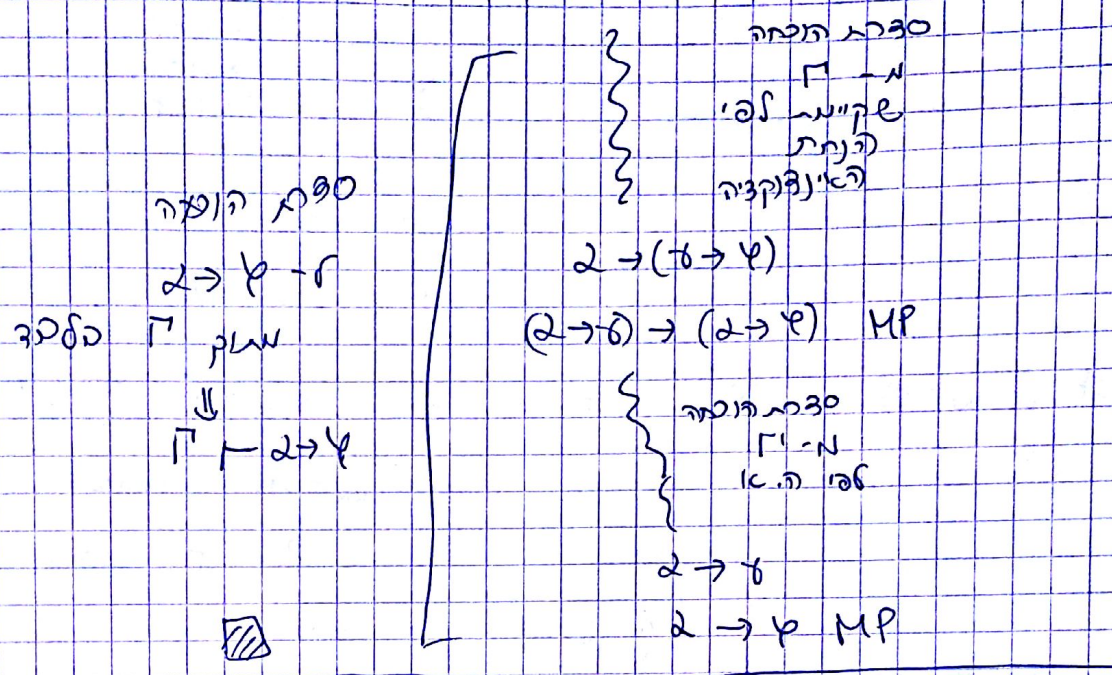 סדרת הוכחה
מ- Γ
שקיימת לפי
הנחת
האינדוקציה
α → (γ → φ)
(α → γ) → (α → φ) MP
סדרת הוכחה
מ- Γ
לפי ה.א
α → γ
α → φ MP
סדרת הוכחה
ל- α → φ
מתוך Γ בלבד
⇓
Γ ⊢ α → φ